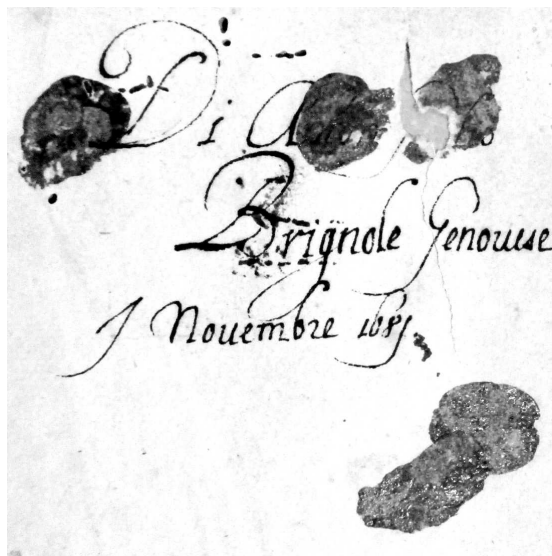 Di
Brignole Genouese
1 Nouembre 1681